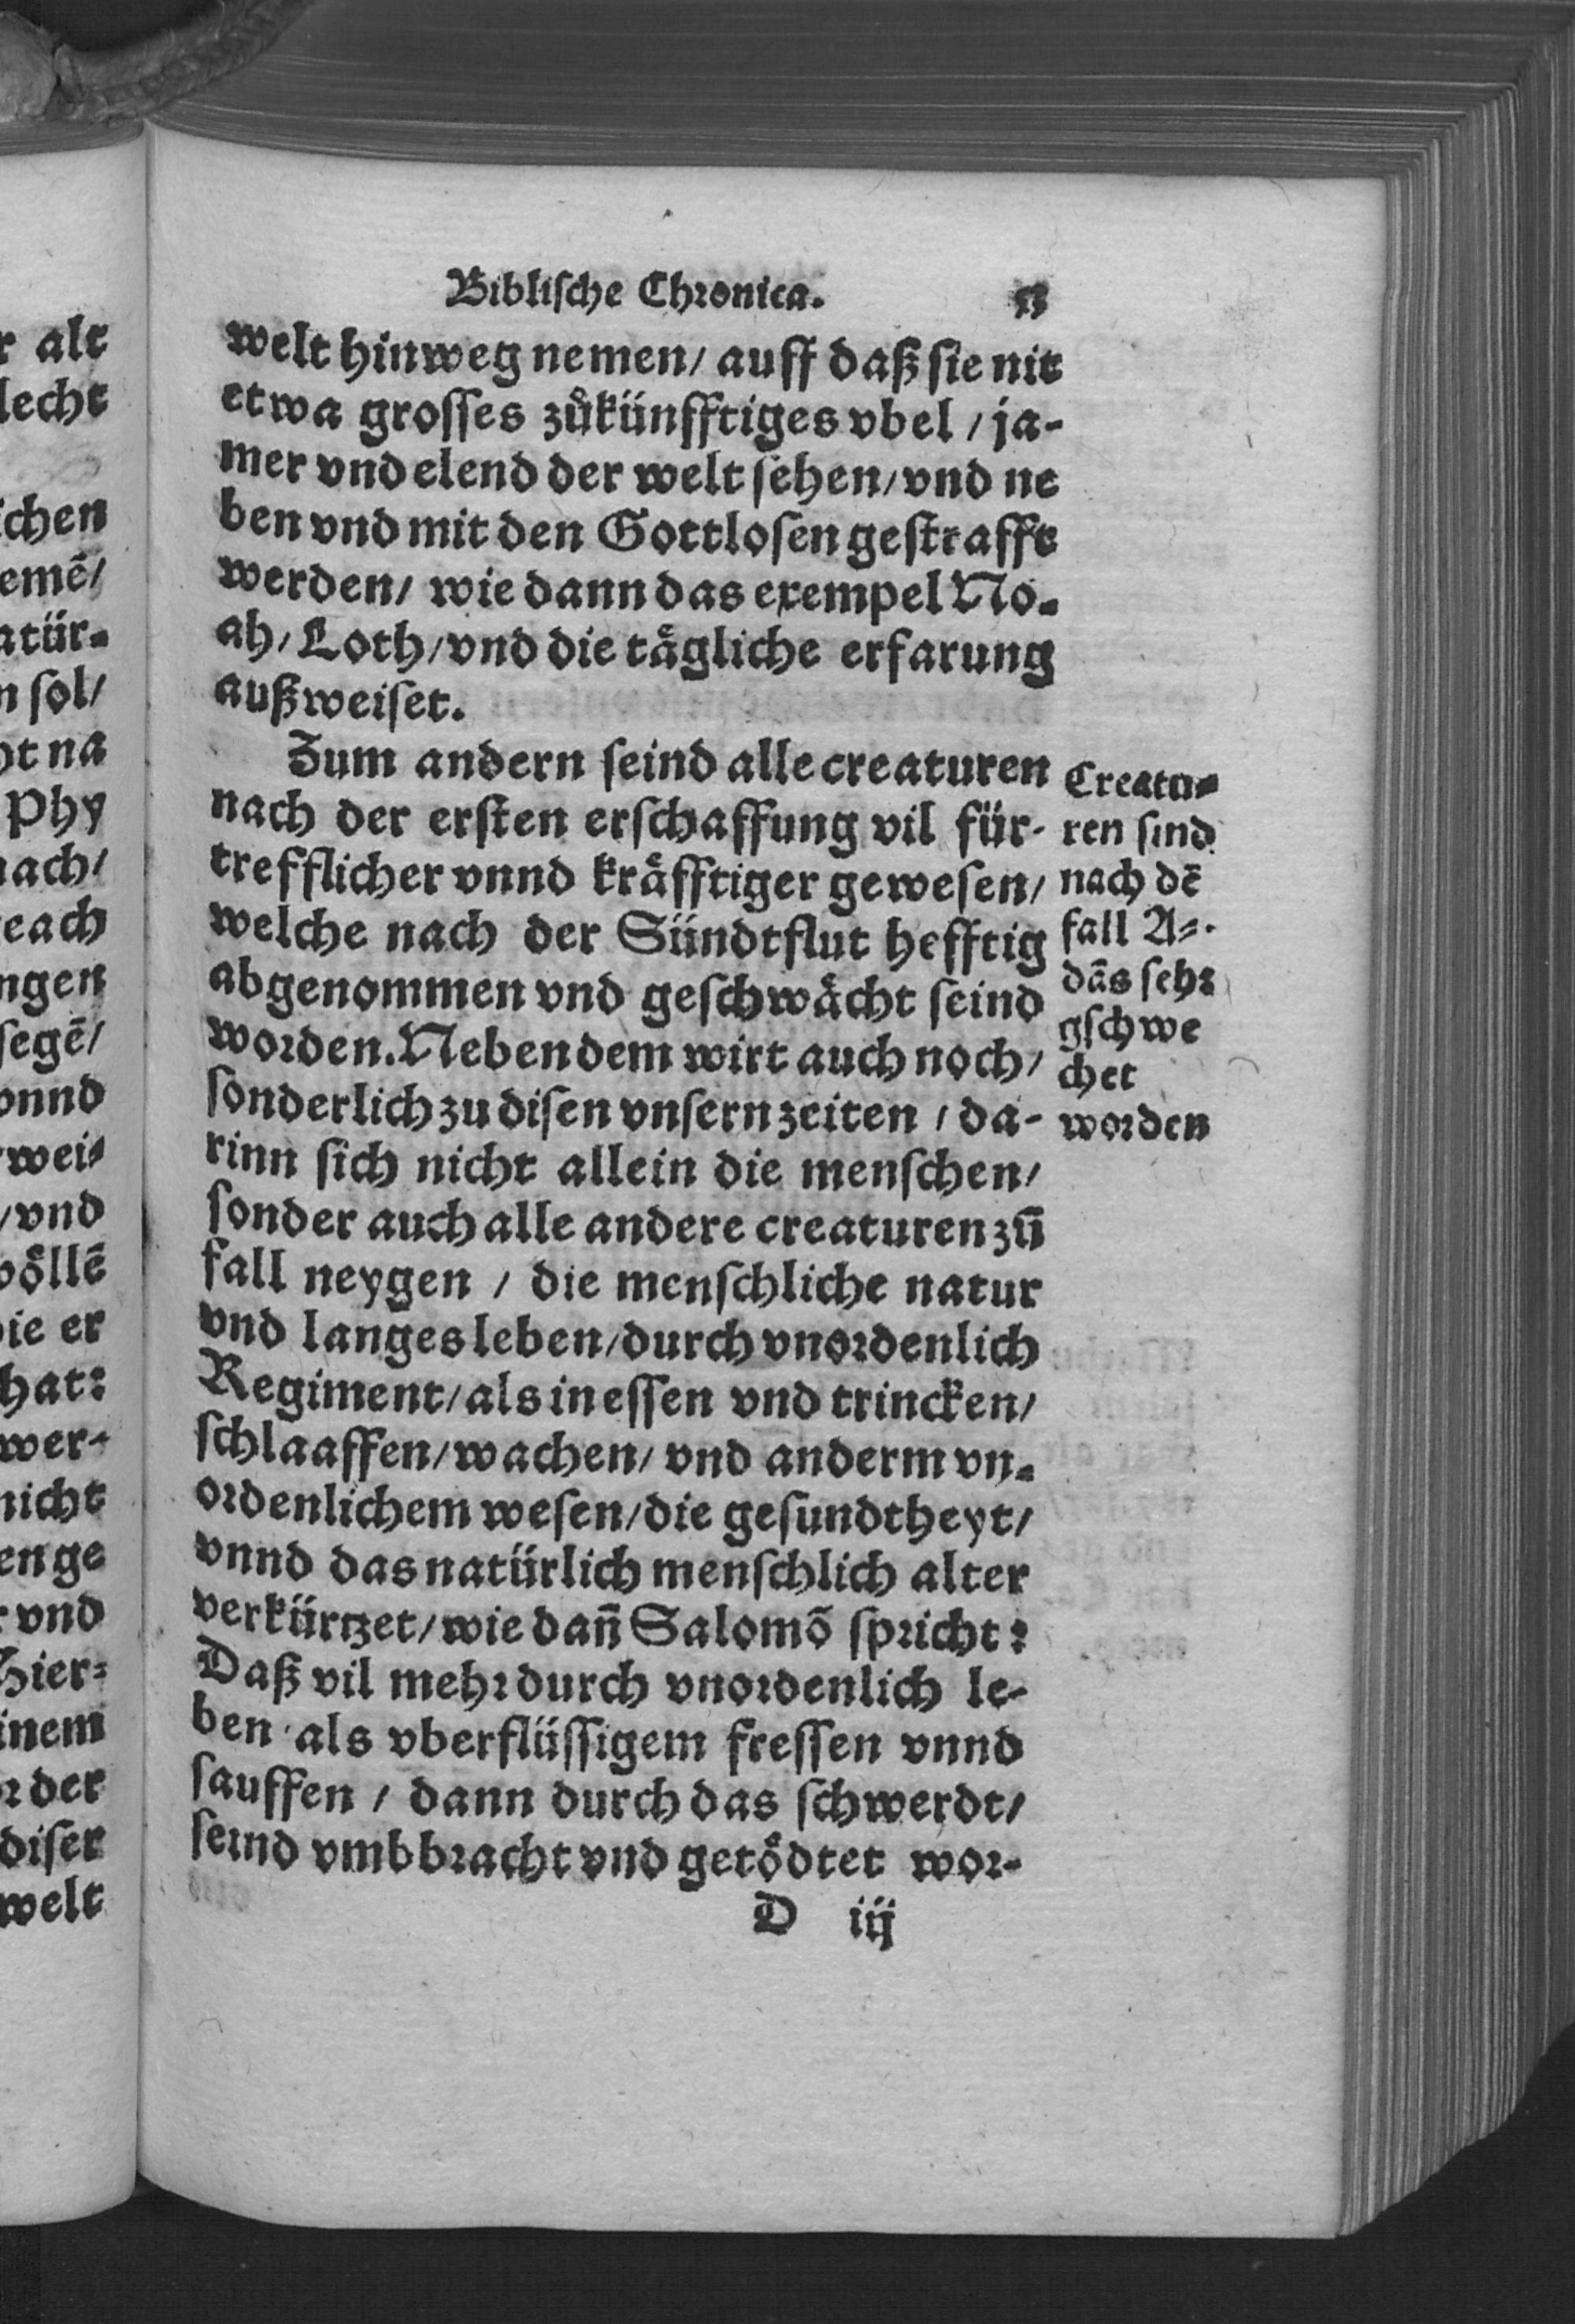 Biblische Chronica. 11
welt hinweg nemen/ auff daß sie nit
etwa grosses zůkünfftiges vbel / ja-
mer vnd elend der welt sehen/ vnd ne
ben vnd mit den Gottlosen gestrafft
werden/ wie dann das exempel No-
ah/ Loth/ vnd die taͤgliche erfarung
außweiset.
Zum andern seind alle creaturen
nach der ersten erschaffung vil für-
trefflicher vnnd kraͤfftiger gewesen/
welche nach der Sündtflut hefftig
abgenommen vnd geschwaͤcht seind
worden. Neben dem wirt auch noch/
sonderlich zu disen vnsern zeiten / da-
rinn sich nicht allein die menschen/
sonder auch alle andere creaturen zū
fall neygen / die menschliche natur
vnd langes leben/ durch vnordenlich
Regiment/ als in essen vnd trincken/
schlaaffen/ wachen/ vnd anderm vn-
ordenlichem wesen/ die gesundtheyt/
vnnd das natürlich menschlich alter
verkürtzet/ wie dañ Salomō spricht:
Daß vil mehr durch vnordenlich le-
ben als vberflüssigem fressen vnnd
sauffen / dann durch das schwerdt/
seind vmbbracht vnd getoͤdtet wor-
D iij
Creatu-
ren sind
nach dē
fall A-
dās sehr
gschwe
chet
worden
r alt
lecht
schen
emē/
atür-
n sol/
ht na
Phy
nach/
reach
ngen
segē/
vnnd
wei-
/ vnd
woͤllē
die er
hat:
wer-
nicht
en ge
r vnd
Hier-
inem
or der
diser
welt